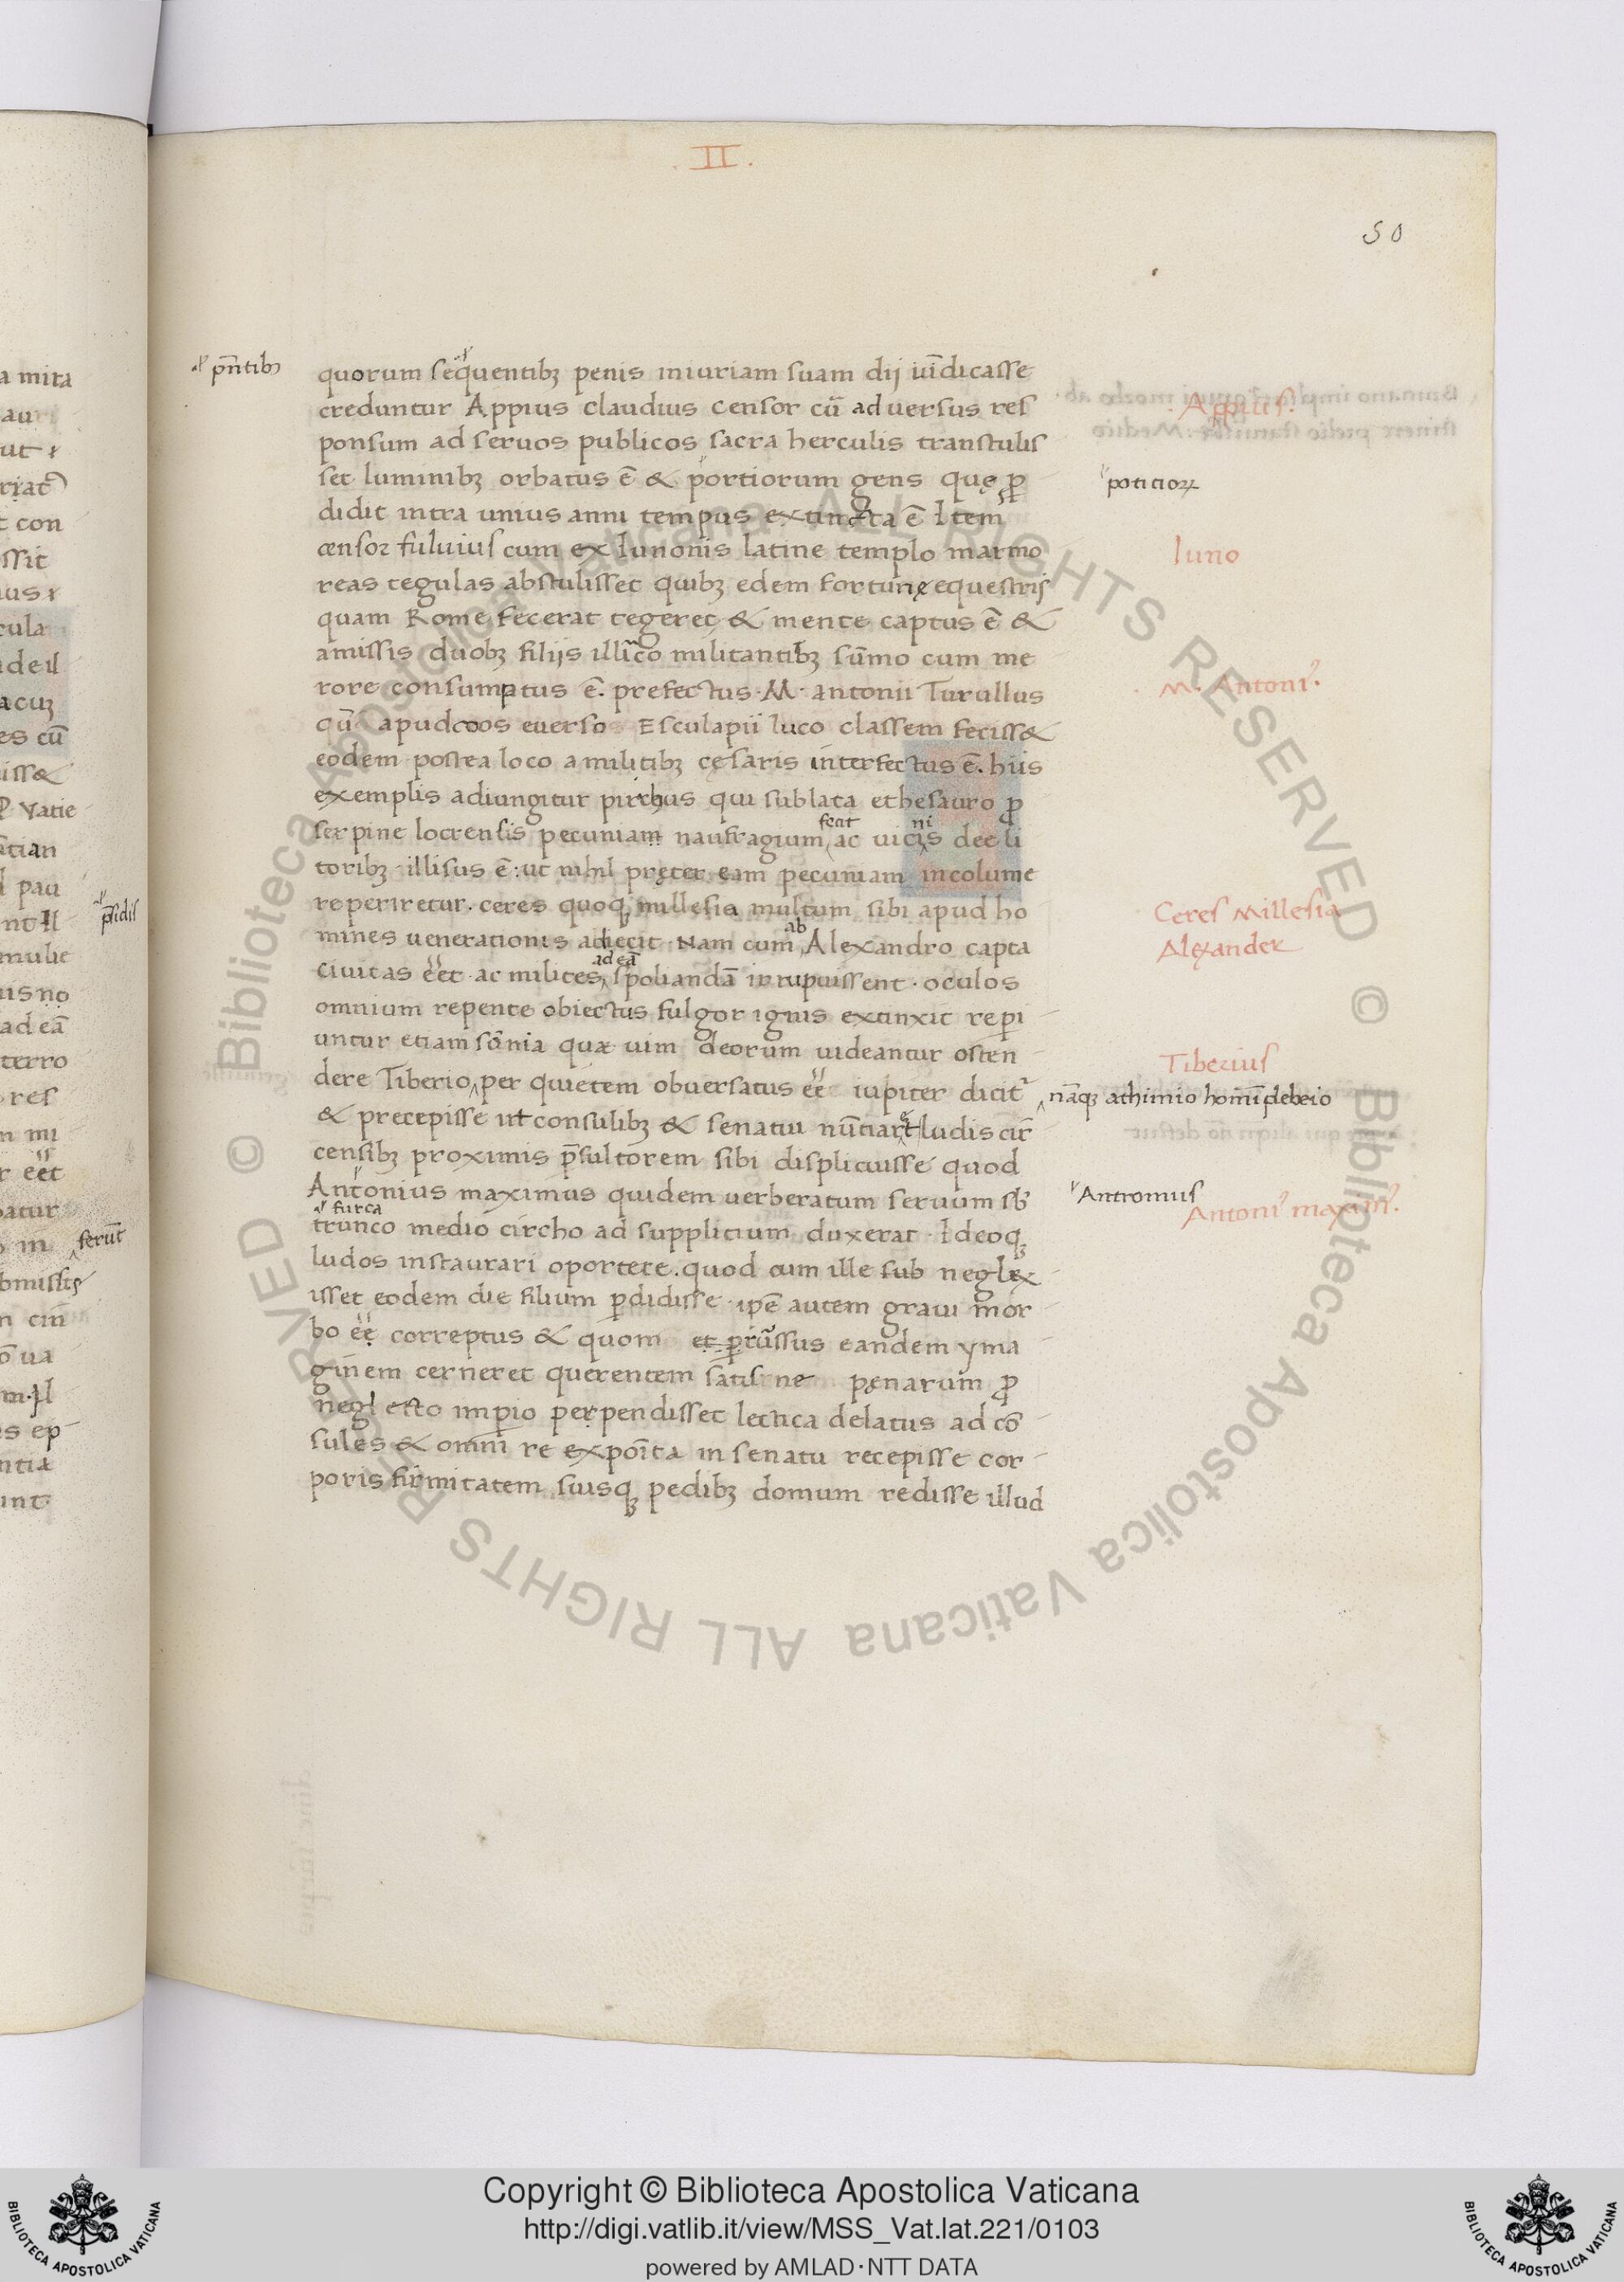 . II .
50
quorum sequentibꝫ penis iniuriam suam dij uīdicasse
creduntur Appius claudius censor cū adversus res
ponsum ad seruos publicos sacra herculis transtulis
set luminibꝫ orbatus ē & portiorum gens quę ꝓ
didit intra unius anni tempus extincta ē Item
censor fuluius cum ex Iunonis latine templo marmo
reas tegulas abstulisset quibꝫ edem fortunę equestris
quam Rome fecerat tegeret & mente captus ē &
amissis duobꝫ filijs illirico militantibꝫ sūmo cum me
rore consumptus ē. prefectus M. antonii Turullus
qū apud coos euerso Esculapii luco classem feciss&
eodem postea loco a militibꝫ cęsaris interfectus ē. hiis
exemplis adiungitur pirrhus qui sublata ethesauro ꝓ
serpine locrensis pecuniam naufragium ac uicis dee li
fecit
ni
toribꝫ illisus ē: ut nihil pręter eam pecuniam incolume
reperiretur. ceres quoqꝫ millesia multum sibi apud ho
mines uenerationis adiecit Nam cum Alexandro capta
ab
civitas eēt ac milites spoliandā irrupuissent. oculos
ad eā
omnium repente obiectus fulgor ignis extinxit repi
untur etiam sōnia quæ uim deorum uideantur osten
dere Tiberio per quietem obversatus eē iupiter dicit
& precepisse ut consulibꝫ & senatui nūtiaret ludis cir
censibꝫ proximis p̄sultorem sibi displicuisse quod
Antonius maximus quidem uerberatum seruum sb̄
furca
trunco medio circho ad supplicium duxerat Ideoqꝫ
ludos instaurari oportere. quod cum ille sub neglex
isset eodem die filium ꝑdidisse ipē autem graui mor
bo eē correptus & quom et ꝑ rūssus eandem yma
ginem cerneret querentem satis ne pęnarum ꝓ
neglecto imꝑio perpendisset lectica delatus ad cō
sules & omni re expoīta in senatu recepisse cor
poris firmitatem suisqꝫ pedibꝫ domum redisse illud
pn̄tibꝫ
Appius.
poticioꝝ
Iuno
M. Antoni⁹.
Ceres Millesia
Alexander
Tiberius
nāqꝫ athimio homī plebeio
Antromus
Antoni⁹ maxim⁹.
a mira
ut
t con
ossit
cula
es cū
iss&
Vatie
pau
p̄sidis
mulie
ad eā
terro
res
r eēt
ferūt
Copyright © Biblioteca Apostolica Vaticana
http://digi.vatlib.it/view/MSS_Vat.lat.221/0103
powered by AMLAD·NTT DATA
BIBLIOTECA APOSTOLICA VATICANA
BIBLIOTECA APOSTOLICA VATICANA
© Biblioteca Apostolica Vaticana ALL RIGHTS RESERVED
© Biblioteca Apostolica Vaticana ALL RIGHTS RESERVED